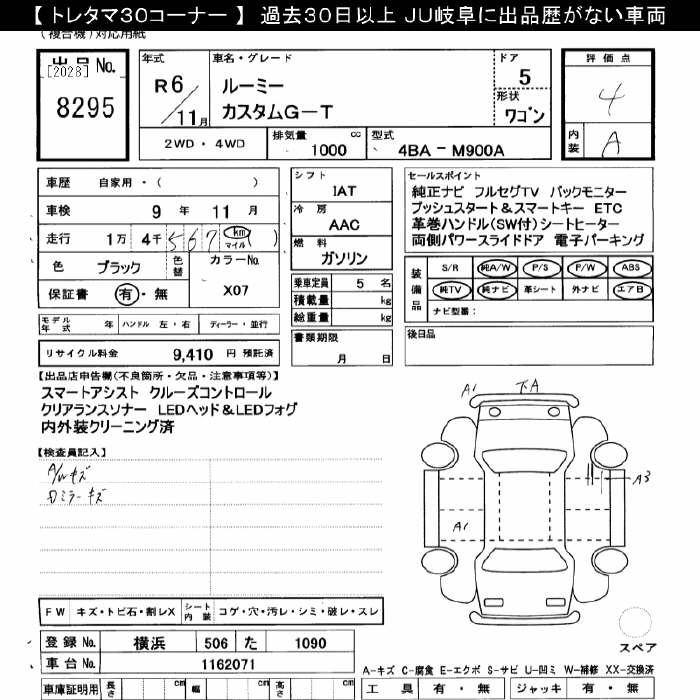 【 トレタマ30コーナー 】 過去30日以上 JU岐阜に出品歴がない車両
(複合機)対応用紙
出品 No.
[2028]
8295
年式
R 6
11 月
車名・グレード
ルーミー
カスタムG-T
ドア
5
形状
ワゴン
評価点
4
内装
A
2WD・4WD
排気量 cc
1000
型式
4BA - M900A
車歴 自家用・( )
車検 9 年 11 月
走行 1万 4千 5 6 7 km マイル ( )
色 ブラック
色替
カラーNo.
X07
保証書 有・無
シフト
IAT
冷房
AAC
燃料
ガソリン
セールスポイント
純正ナビ フルセグTV バックモニター
プッシュスタート&スマートキー ETC
革巻ハンドル(SW付)シートヒーター
両側パワースライドドア 電子パーキング
乗車定員 5 名
積載量 kg
総重量 kg
装備品
S/R 純A/W P/S P/W ABS
純TV 純ナビ 革シート 外ナビ エアB
ナビ型番:
モデル年式 年 ハンドル 左・右 ディーラー・並行
書類期限
月 日
後日品
リサイクル料金 9,410 円 預託済
【出品店申告欄(不良箇所・欠品・注意事項等)】
スマートアシスト クルーズコントロール
クリアランスソナー LEDヘッド&LEDフォグ
内外装クリーニング済
【検査員記入】
A/Wキズ
Dミラーキズ
A1
下A
A3
A1
スペア
FW キズ・トビ石・割レX
シート内装 コゲ・穴・汚レ・シミ・破レ・スレ
登録 No. 横浜 506 た 1090
車台 No. 1162071
車庫証明用 長さ cm 幅 cm 高さ cm
A-キズ C-腐食 E-エクボ S-サビ U-凹ミ W-補修 XX-交換済
工具 有・無 ジャッキ 有・無